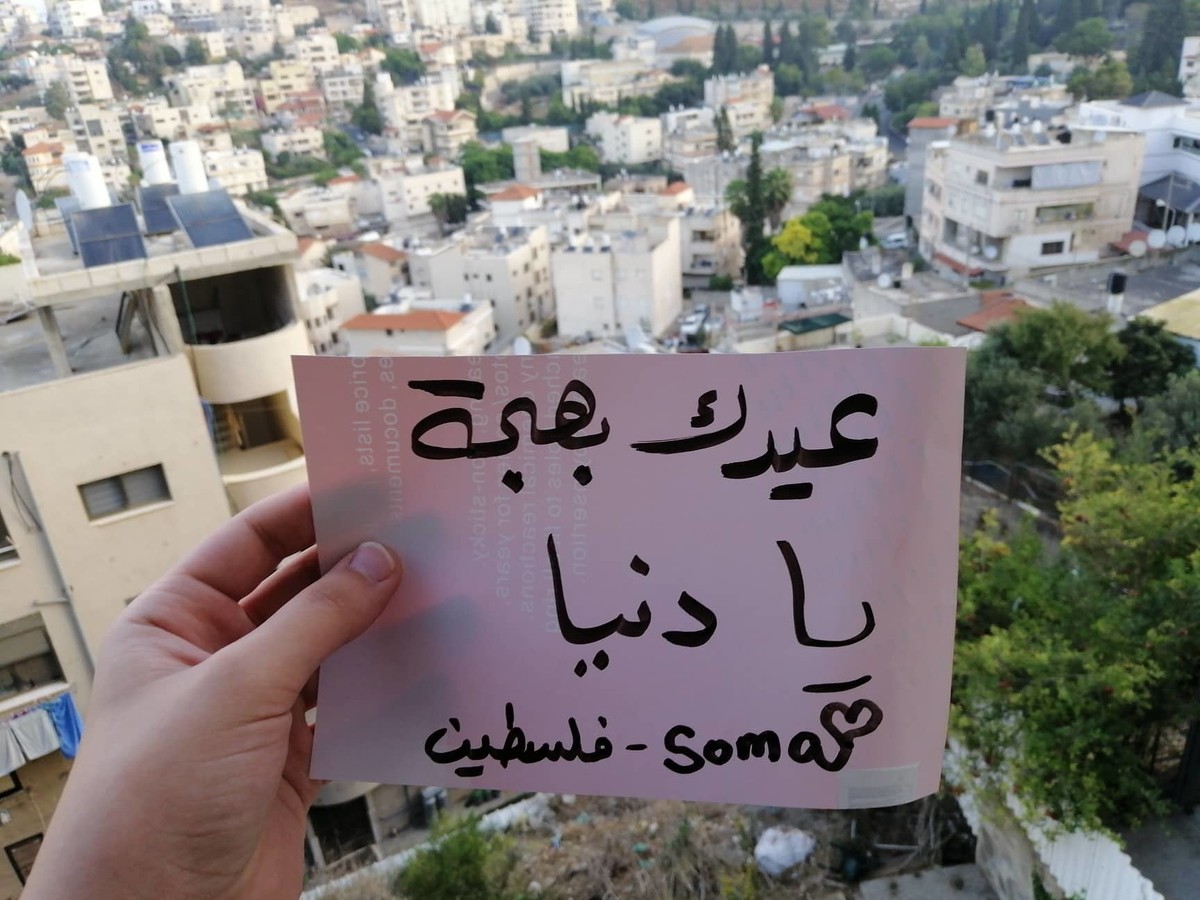 عيدك بهجة
يا دنيا
Soma - فلسطين